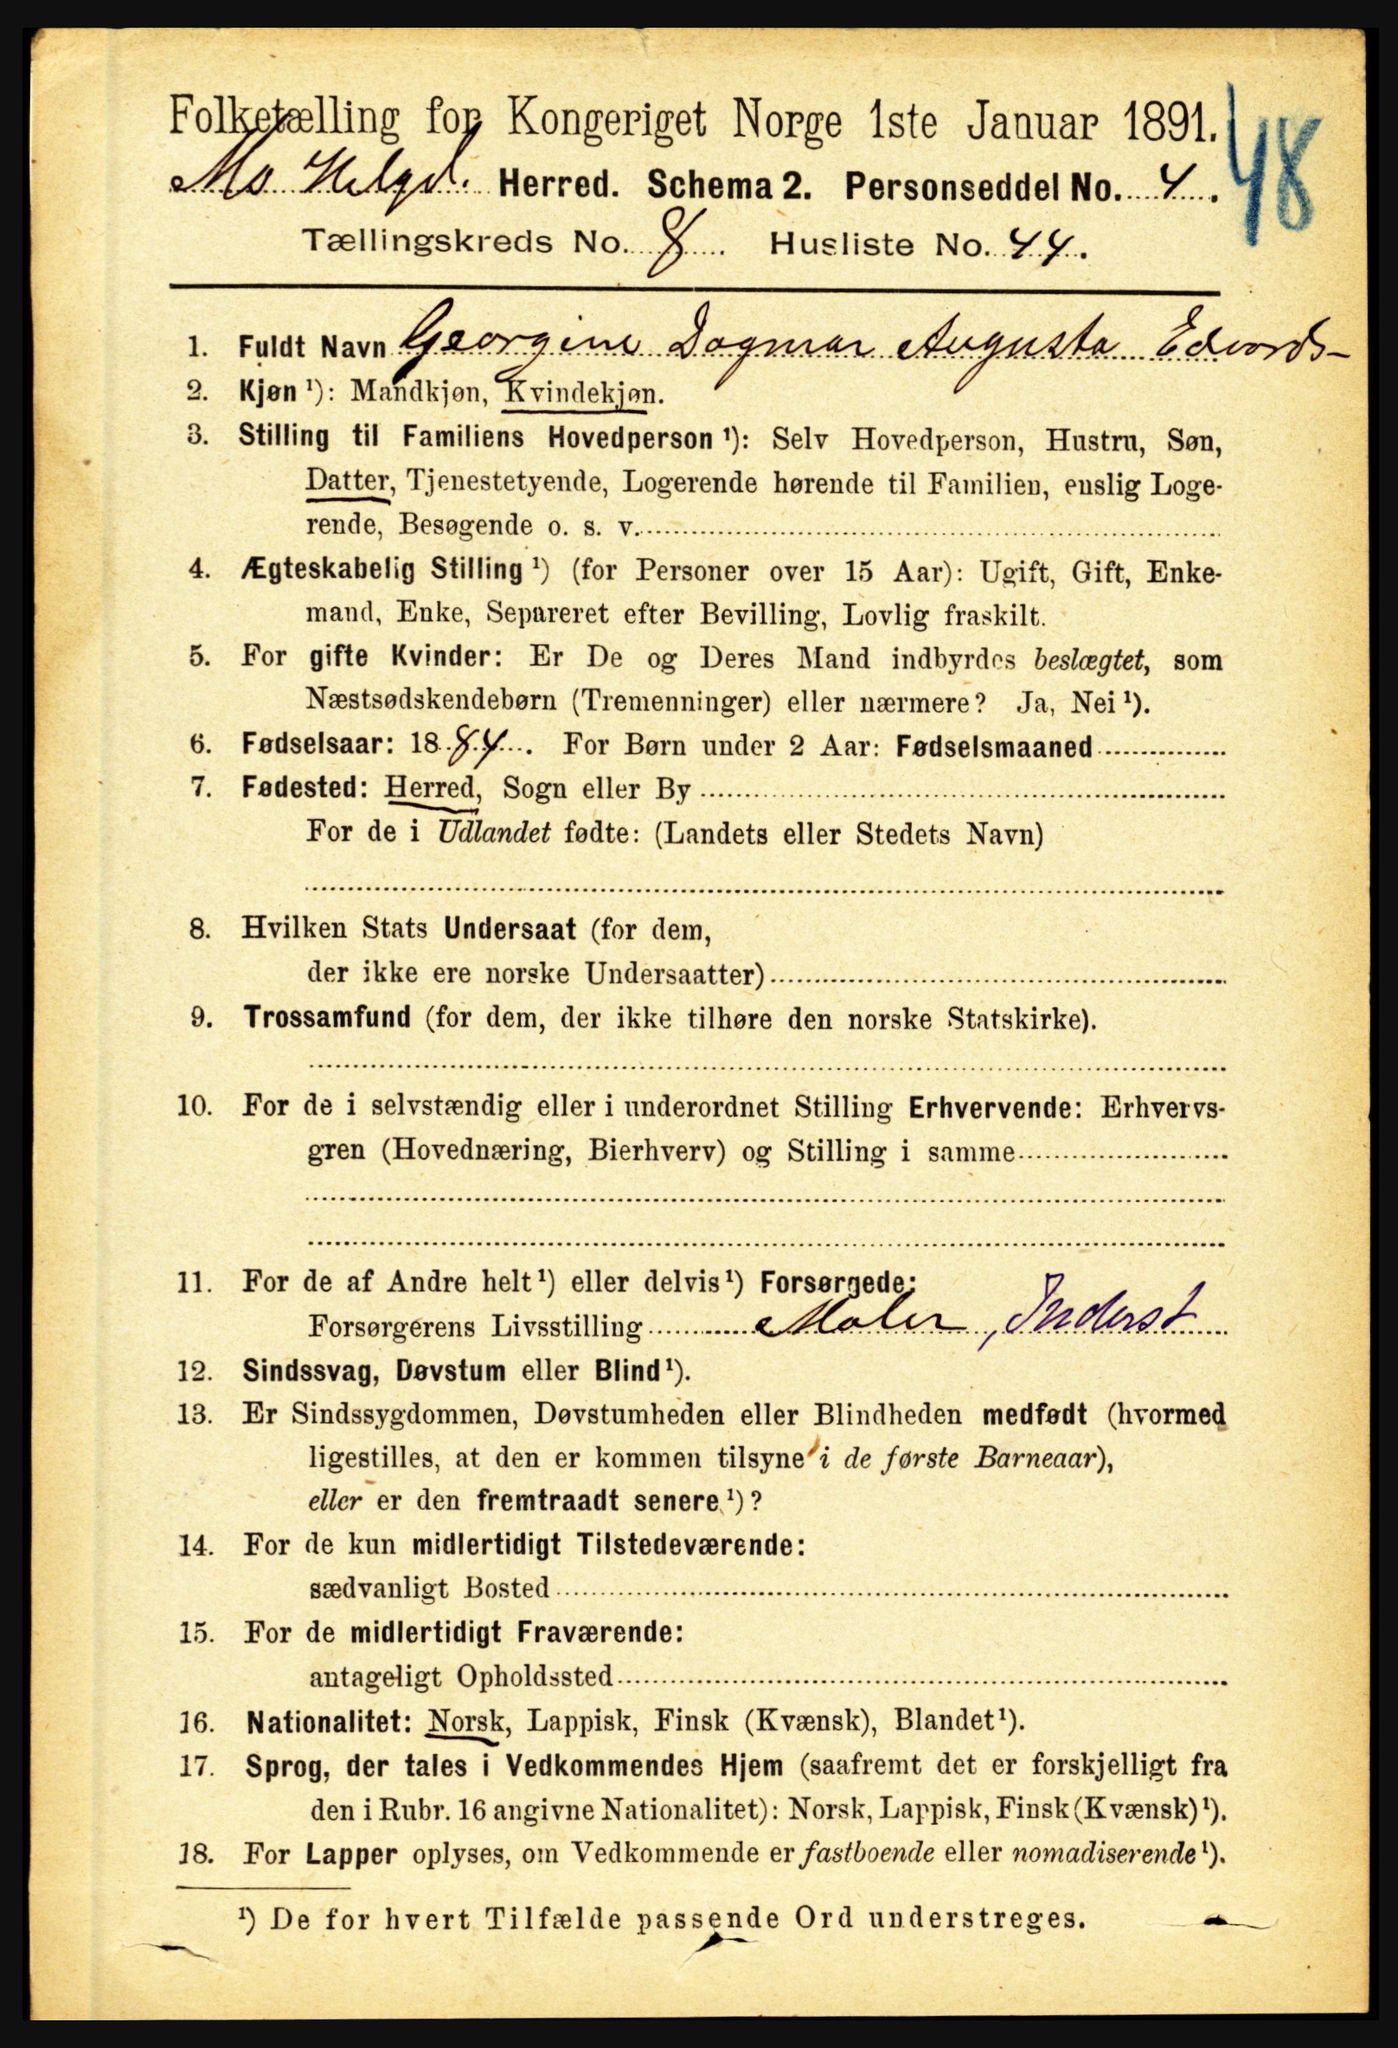 Folketælling for Kongeriget Norge 1ste Januar 1891.
48
Mo Helgel. Herred. Schema 2. Personseddel No. 4.
Tællingskreds No. 8. Husliste No. 44.
1. Fuldt Navn Georgine Dagmar Augusta Edvards-
2. Kjøn ¹): Mandkjøn, Kvindekjøn.
3. Stilling til Familiens Hovedperson ¹): Selv Hovedperson, Hustru, Søn,
Datter, Tjenestetyende, Logerende hørende til Familien, enslig Loge-
rende, Besøgende o. s. v.
4. Ægteskabelig Stilling ¹) (for Personer over 15 Aar): Ugift, Gift, Enke-
mand, Enke, Separeret efter Bevilling, Lovlig fraskilt.
5. For gifte Kvinder: Er De og Deres Mand indbyrdes beslægtet, som
Næstsødskendebørn (Tremenninger) eller nærmere? Ja, Nei ¹).
6. Fødselsaar: 1884. For Børn under 2 Aar: Fødselsmaaned
7. Fødested: Herred, Sogn eller By
For de i Udlandet fødte: (Landets eller Stedets Navn)
8. Hvilken Stats Undersaat (for dem,
der ikke ere norske Undersaatter)
9. Trossamfund (for dem, der ikke tilhøre den norske Statskirke).
10. For de i selvstændig eller i underordnet Stilling Erhvervende: Erhvervs-
gren (Hovednæring, Bierhverv) og Stilling i samme
11. For de af Andre helt ¹) eller delvis ¹) Forsørgede:
Forsørgerens Livsstilling Maler, Inderst
12. Sindssvag, Døvstum eller Blind ¹).
13. Er Sindssygdommen, Døvstumheden eller Blindheden medfødt (hvormed
ligestilles, at den er kommen tilsyne i de første Barneaar),
eller er den fremtraadt senere ¹)?
14. For de kun midlertidigt Tilstedeværende:
sædvanligt Bosted
15. For de midlertidigt Fraværende:
antageligt Opholdssted
16. Nationalitet: Norsk, Lappisk, Finsk (Kvænsk), Blandet ¹).
17. Sprog, der tales i Vedkommendes Hjem (saafremt det er forskjelligt fra
den i Rubr. 16 angivne Nationalitet): Norsk, Lappisk, Finsk (Kvænsk) ¹).
18. For Lapper oplyses, om Vedkommende er fastboende eller nomadiserende ¹).
¹) De for hvert Tilfælde passende Ord understreges.